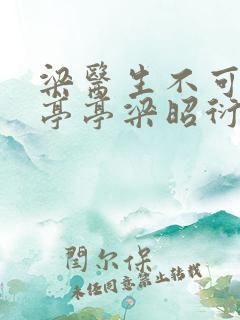 梁醫生不可
亭亭梁昭衍
閆尔保
未经同意禁止转载